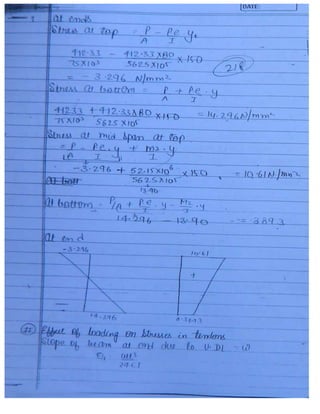 DATE:
at ends
Stress at top = P/A - Pe/I y
412.33/75×10³ - 412.33×80/5625×10⁵ ×150
= -3.296 N/mm²
Stress at bottom = P/A + Pe/I . y
412.33/75×10³ + 412.33×80/5625×10⁵ ×150 = 14.296 N/mm²
Stress at mid span at top
= P/A - Pe/I . y + M2/I . y
-3.296 + 52.15×10⁶/5625×10⁵ ×150 = 10.61 N/mm²
13.90
at bottom = P/A + Pe/I . y - M2/I . y
14.296 - 13.90 =
at end
-3.296 10.61
+
14.296
Effect of loading on stresses in tendons
Slope of beam at end due to U.D.L - ω